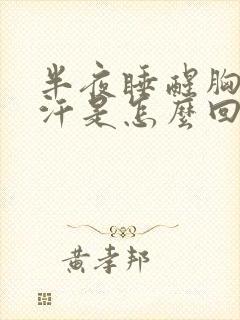 半夜睡醒胸
汗是怎麼回
黃孝邦